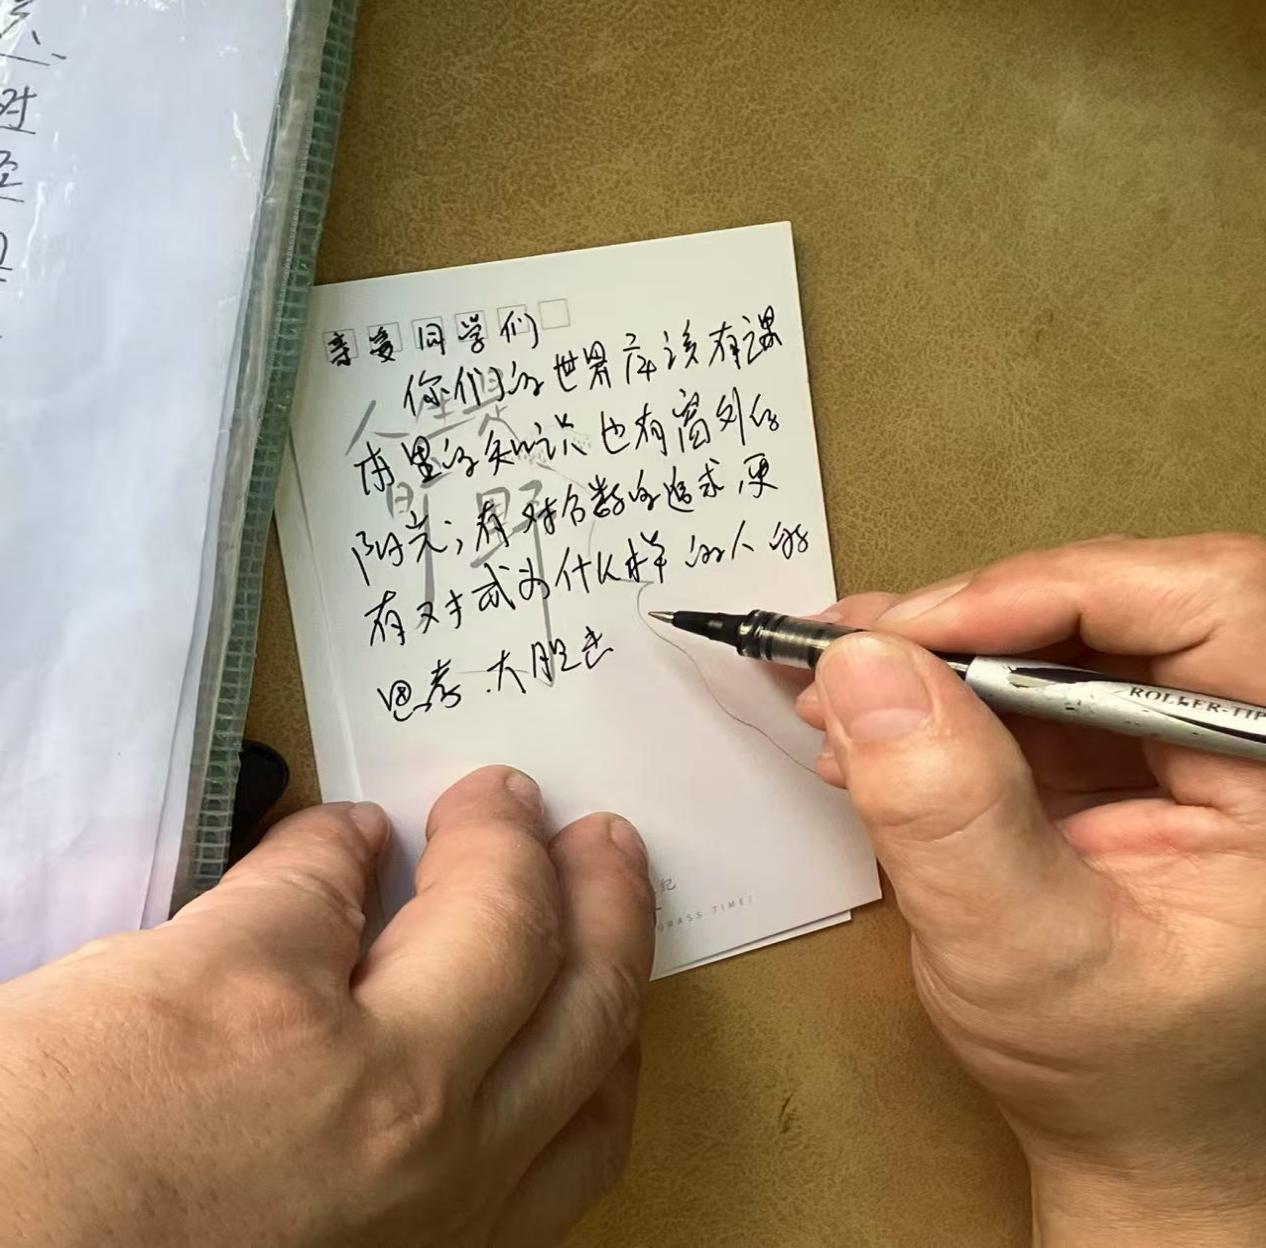 亲爱同学们
你们的世界应该有课
本里的知识也有窗外的
阳光；有对分数的追求，更
有对于成为什么样的人的
思考.大胆去
人生是
旷野
纪
GRASS TIME
ROLLER-TIP
对